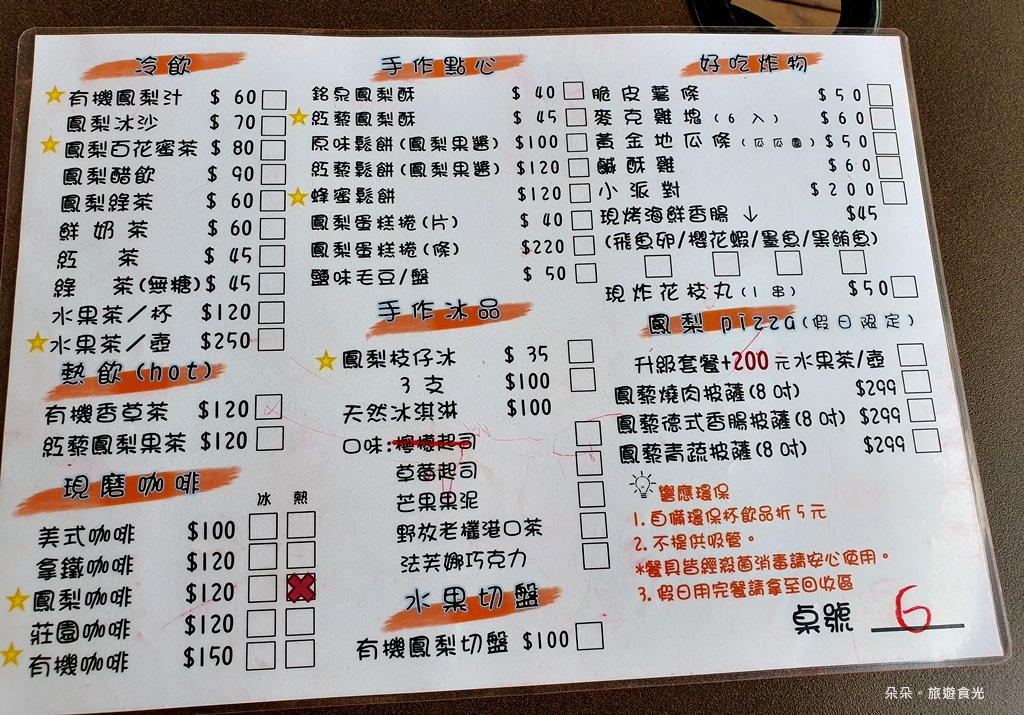 冷飲
有機鳳梨汁 $ 60
鳳梨冰沙 $ 70
鳳梨百花蜜茶 $ 80
鳳梨醋飲 $ 90
鳳梨綠茶 $ 60
鮮奶茶 $ 60
紅 茶 $ 45
綠 茶(無糖) $ 45
水果茶/杯 $120
水果茶/壺 $250
熱飲(hot)
有機香草茶 $120
紅藜鳳梨果茶 $120
現磨咖啡
冰 熱
美式咖啡 $100
拿鐵咖啡 $120
鳳梨咖啡 $120
莊園咖啡 $120
有機咖啡 $150
手作點心
銘泉鳳梨酥 $ 40
紅藜鳳梨酥 $ 45
原味鬆餅(鳳梨果醬) $100
紅藜鬆餅(鳳梨果醬) $120
蜂蜜鬆餅 $120
鳳梨蛋糕捲(片) $ 40
鳳梨蛋糕捲(條) $220
鹽味毛豆/盤 $ 50
手作冰品
鳳梨枝仔冰 $ 35
3 支 $100
天然冰淇淋 $100
口味:檸檬起司
草莓起司
芒果果泥
野放老欉港口茶
法芙娜巧克力
水果切盤
有機鳳梨切盤 $100
好吃炸物
脆皮薯條 $50
麥克雞塊(6 入) $60
黃金地瓜條(瓜瓜園) $50
鹹酥雞 $60
小派對 $200
現烤海鮮香腸 ↓ $45
(飛魚卵/櫻花蝦/墨魚/黑鮪魚)
現炸花枝丸(1 串) $50
鳳梨 pizza(假日限定)
升級套餐+200元水果茶/壺
鳳藜燒肉披薩(8 吋) $299
鳳藜德式香腸披薩(8 吋) $299
鳳藜青蔬披薩(8 吋) $299
響應環保
1. 自備環保杯飲品折 5 元
2. 不提供吸管。
*餐具皆經殺菌消毒請安心使用。
3. 假日用完餐請拿至回收區
桌號 6
朵朵。旅遊食光